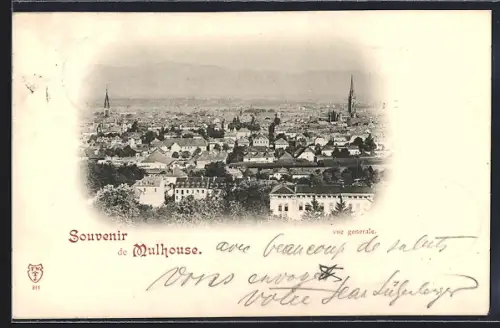 vue generale.
Souvenir
de Mulhouse. avec beaucoup de saluts
Vous envoyé
votre Jean
311